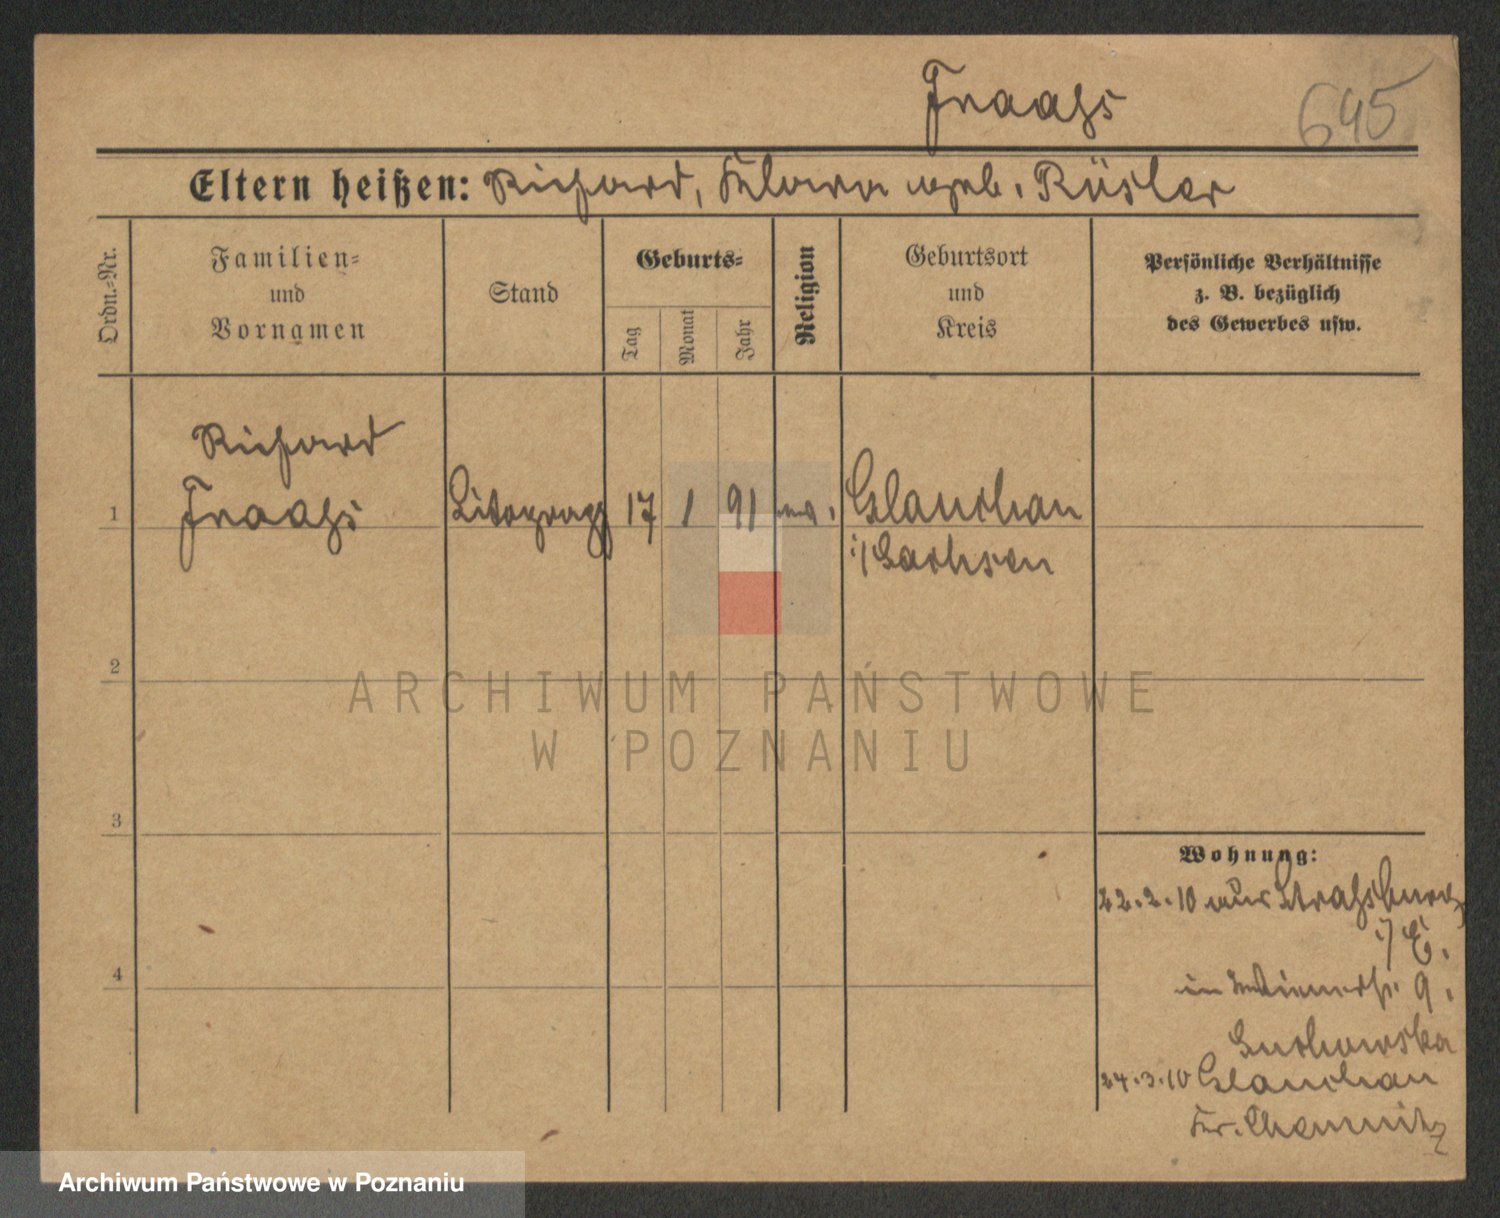 Fraahs
645
Eltern heißen: Richard, Klara geb. Rüsler
Ordn.-Nr.
Familien-
und
Vornamen
Stand
Geburts-
Tag
Monat
Jahr
Religion
Geburtsort
und
Kreis
Persönliche Verhältnisse
z. B. bezüglich
des Gewerbes usw.
Richard
1 Fraahs Litograph 17 1 91 ev. Glauchau
i/Sachsen
2
3
4
Wohnung:
22.2.10 aus Strassburg
i/E.
9.
24.3.10 Glauchau
Kr. Chemnitz
ARCHIWUM PAŃSTWOWE
W POZNANIU
Archiwum Państwowe w Poznaniu